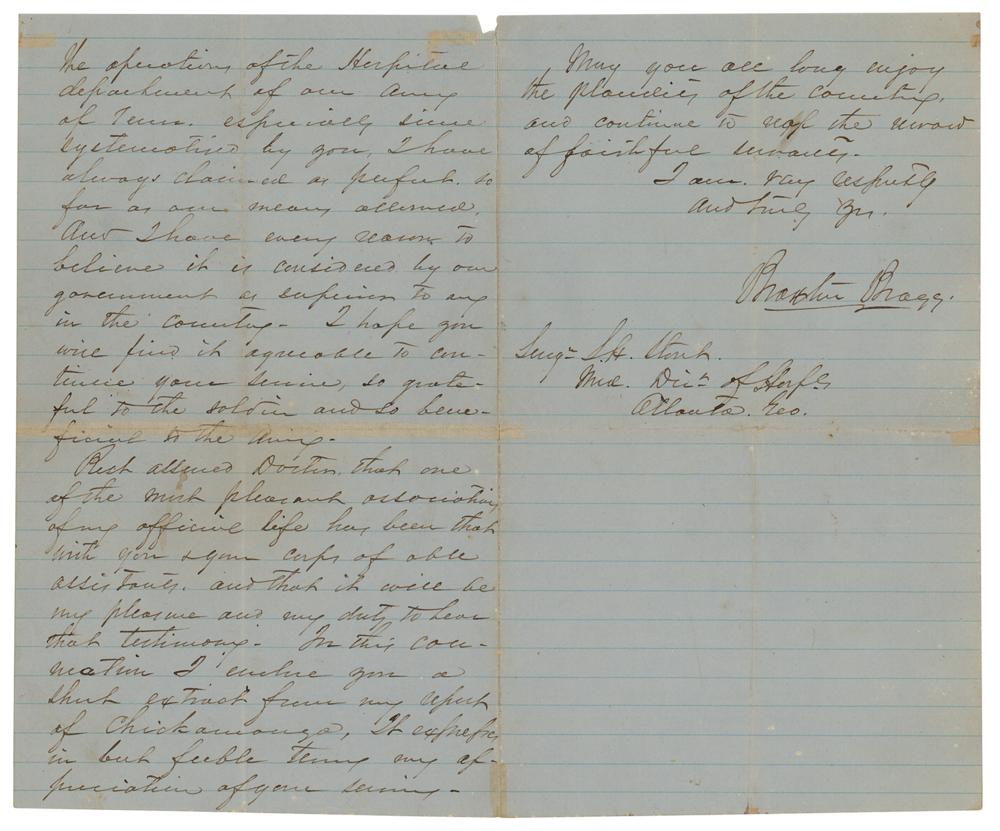 The operations of the Hospital
department of our Army
of Tenn. especially since
systematised by you, I have
always claimed as perfect. so
far as our means allowed.
And I have every reason to
believe it is considered by our
government as superior to any
in the country - I hope you
will find it agreable to con-
tinue your service, so grate-
ful to the soldier and so bene-
ficial to the Army -
Rest assured Doctor, that one
of the most pleasant associations
of my official life has been that
with you & your corps of able
assistants. and that it will be
my pleasure and my duty to bear
that testimony - In this con-
nection I enclose you a
short extract from my report
of Chickamauga, It expresses
in but feeble terms my ap-
preciation of your services -
May you all long enjoy
the plaudits of the country,
and continue to reap the reward
of faithful servants -
I am. Very respectly
and truly Yrs.
Braxton Bragg.
Surgn S.H. Stout.
Med. Dirr of Hospls
Atlanta. Geo.